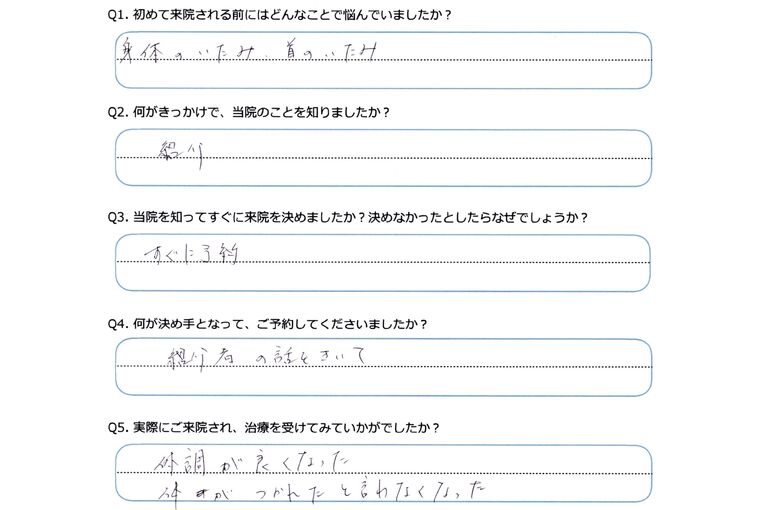 Q1. 初めて来院される前にはどんなことで悩んでいましたか？
身体のいたみ、首のいたみ
Q2. 何がきっかけで、当院のことを知りましたか？
紹介
Q3. 当院を知ってすぐに来院を決めましたか？決めなかったとしたらなぜでしょうか？
すぐに予約
Q4. 何が決め手となって、ご予約してくださいましたか？
紹介者の話をきいて
Q5. 実際にご来院され、治療を受けてみていかがでしたか？
体調が良くなった
つかれたと言わなくなった